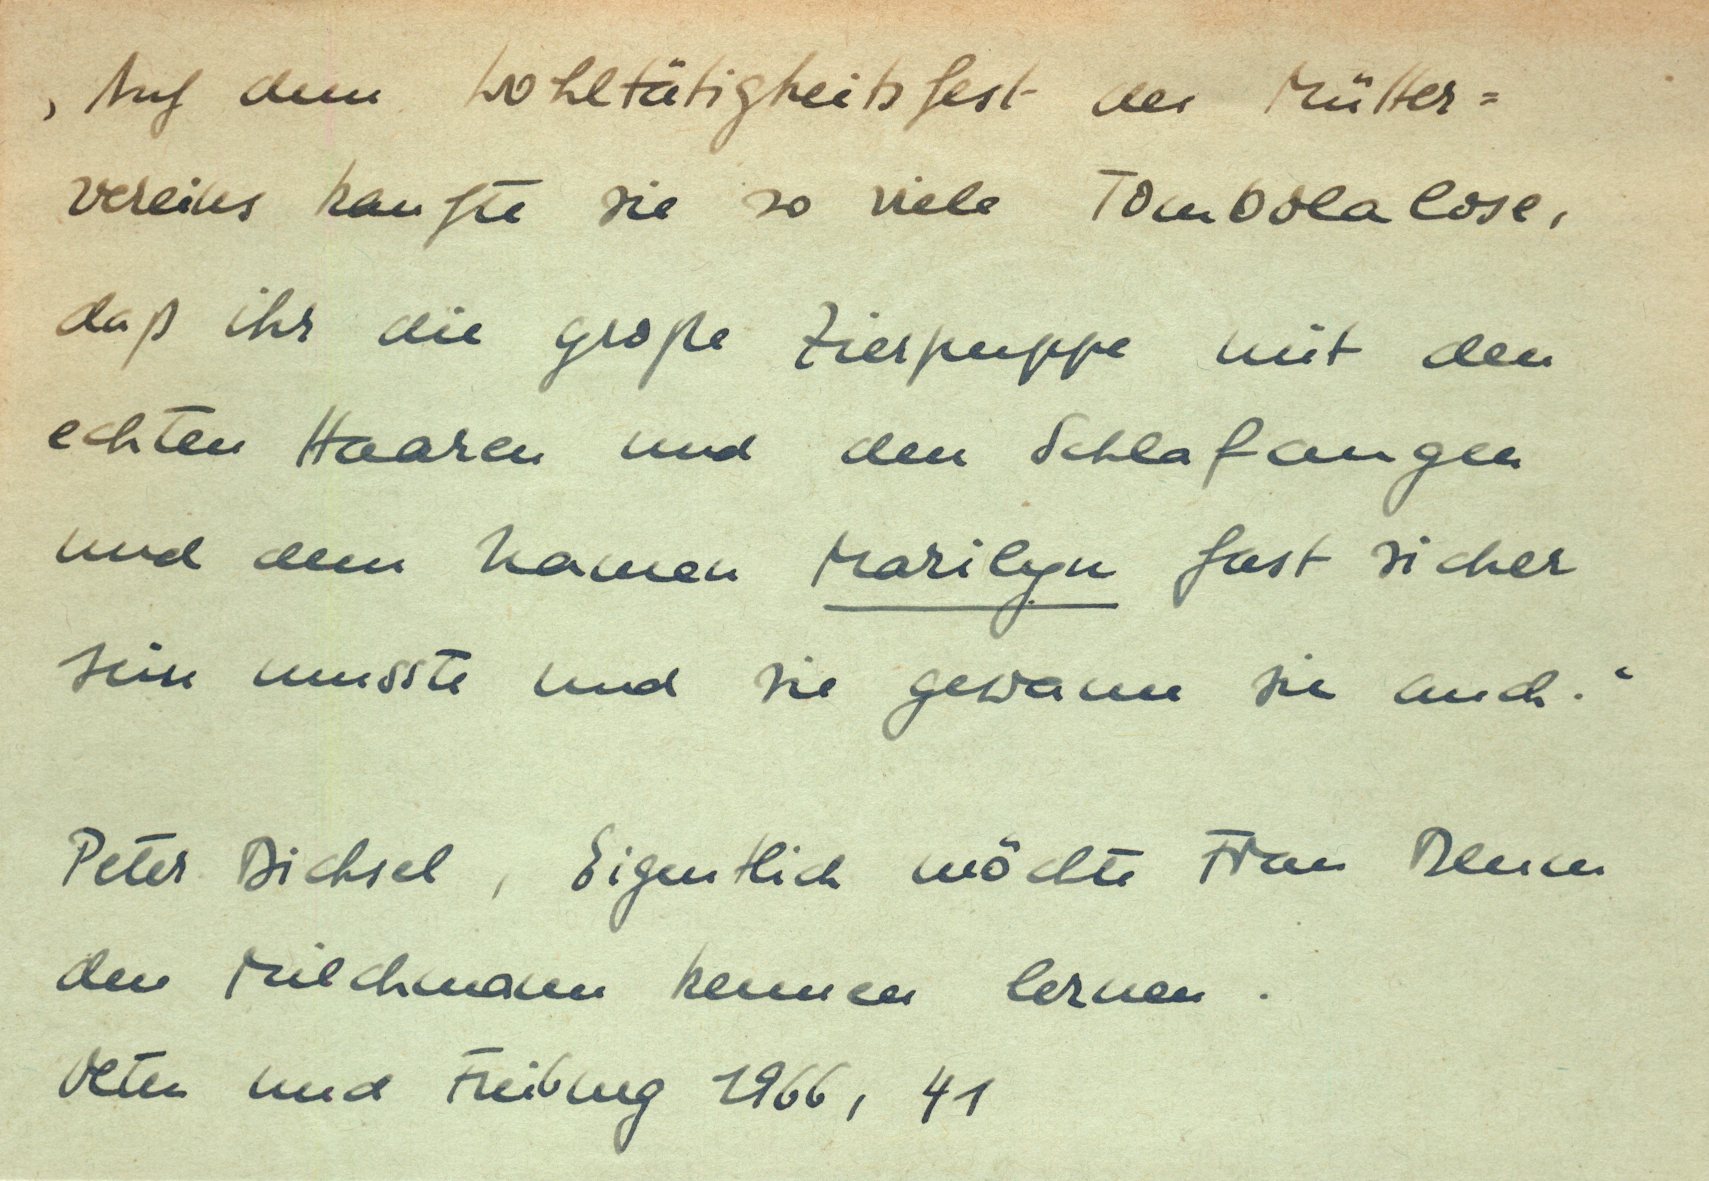 „Auf dem Wohltätigkeitsfest des Mütter=
vereins kaufte sie so viele Tombolalose,
daß ihr die große Zierpuppe mit den
echten Haaren und den Schlafaugen
und dem Namen Marilyn fast sicher
sein musste und sie gewann sie auch.“
Peter Bichsel, Eigentlich möchte Frau Blum
den Milchmann kennen lernen.
Olten und Freiburg 1966, 41